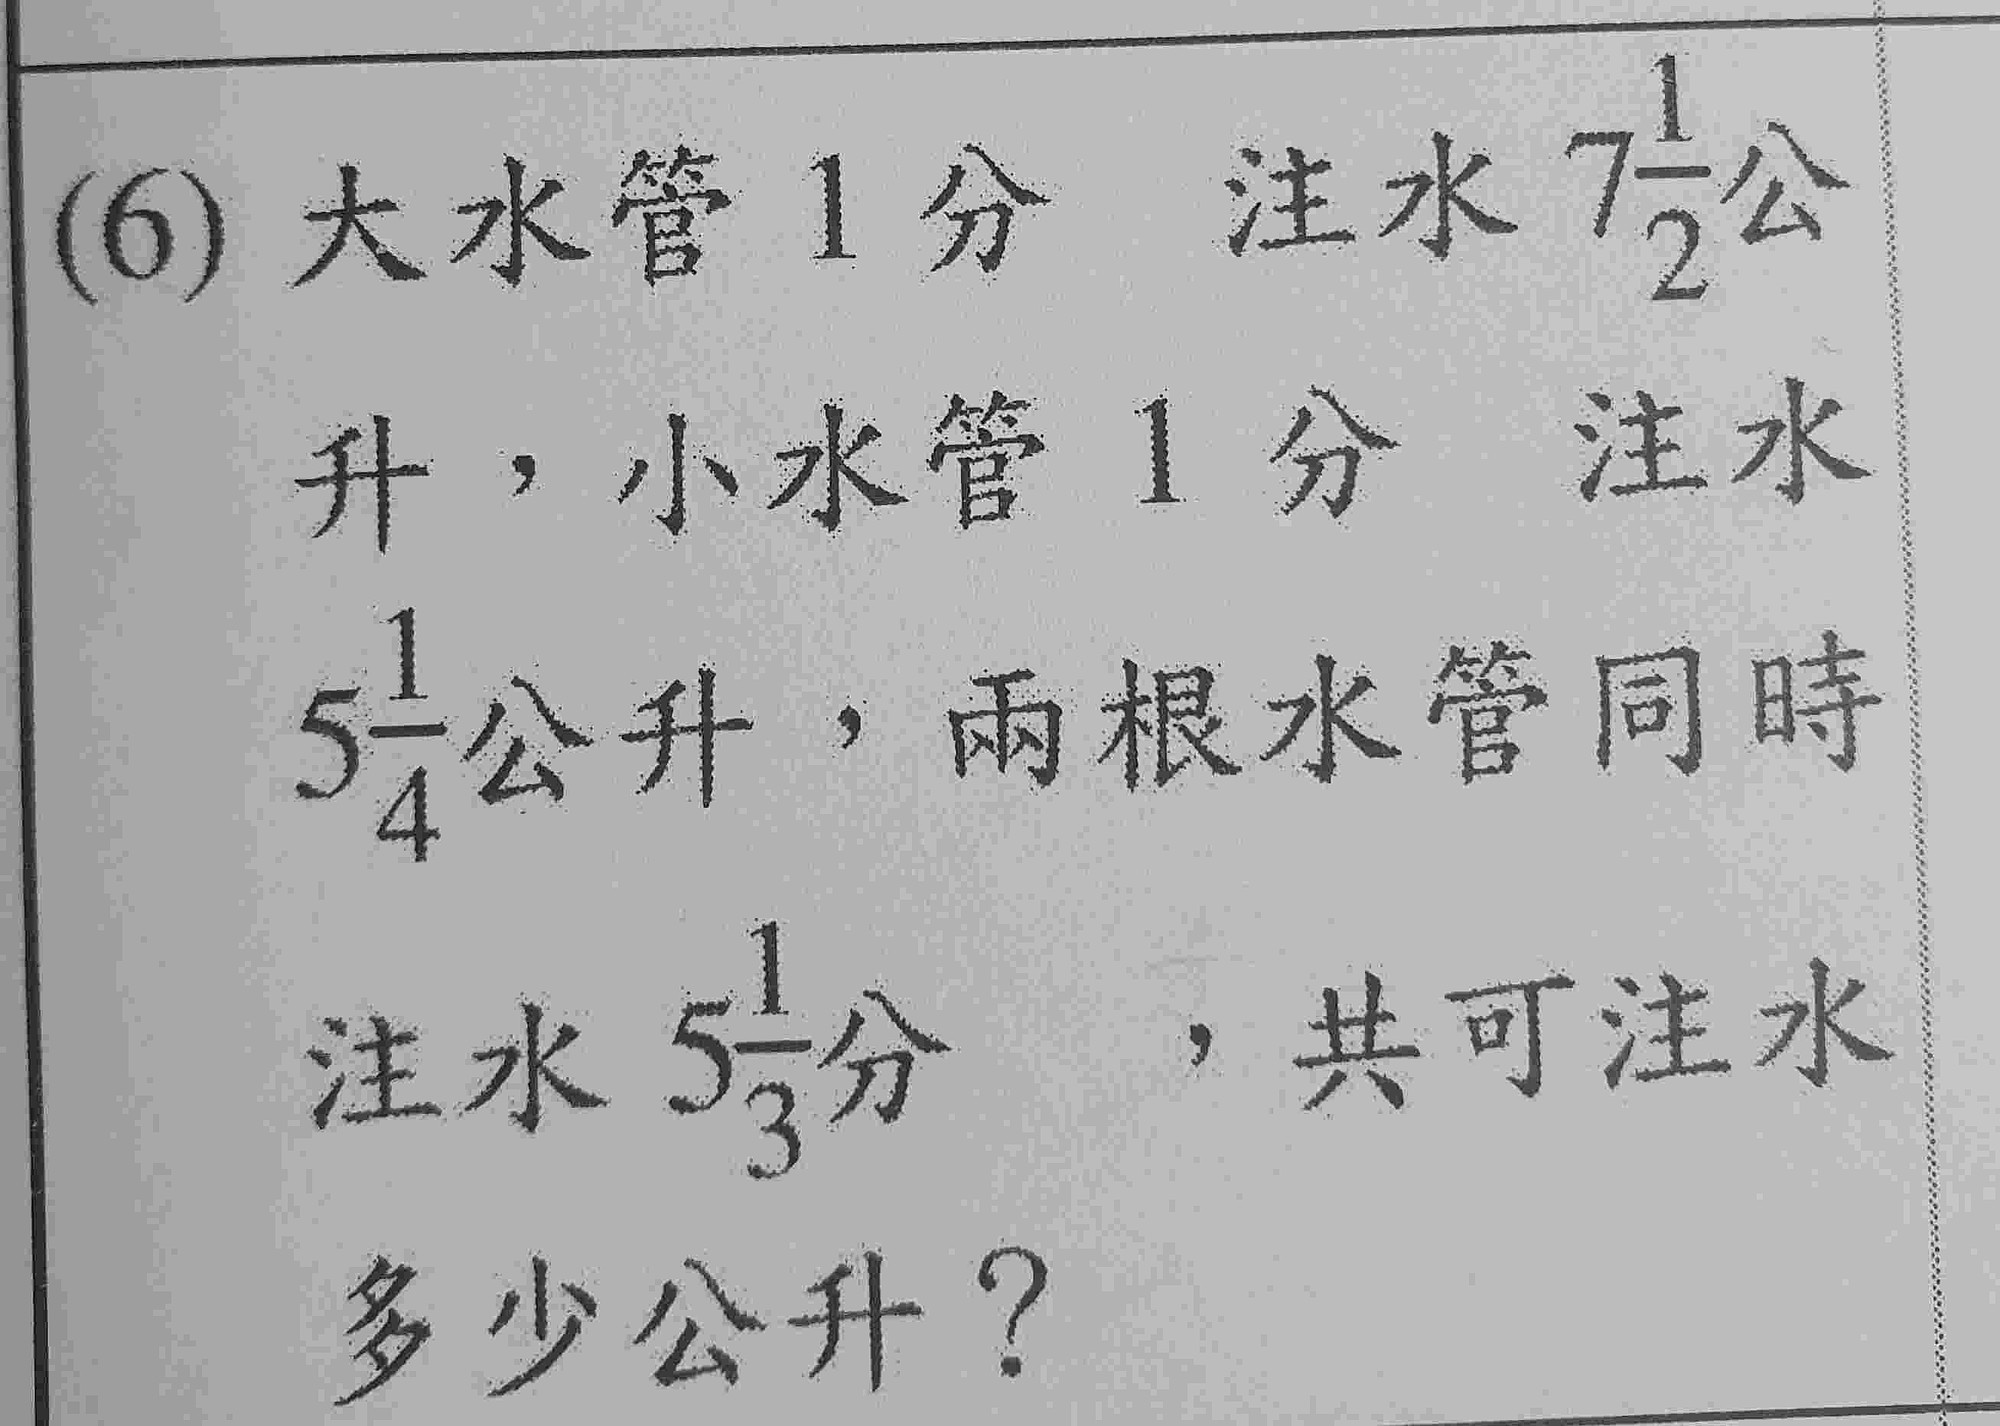 (6) 大水管 1 分 注水 7 1/2 公
升，小水管 1 分 注水
5 1/4 公升，兩根水管同時
注水 5 1/3 分 ，共可注水
多少公升？